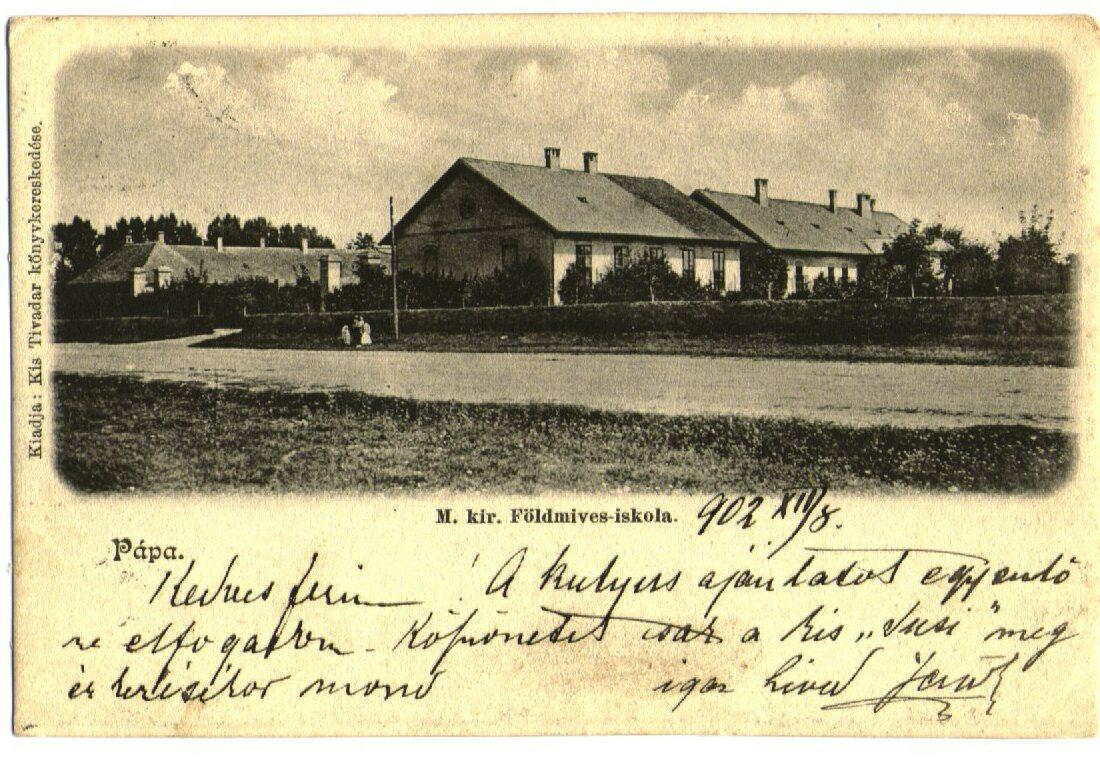 Kiadja: Kis Tivadar könyvkereskedése.
M. kir. Földmives-iskola.
902 XII/8.
Pápa.
Kedves Ferim! A kutyus ajánlatot egyenlő
re elfogadom. Köszönetet csak a kis „Susi” meg
érkezésekor mond
igaz híved